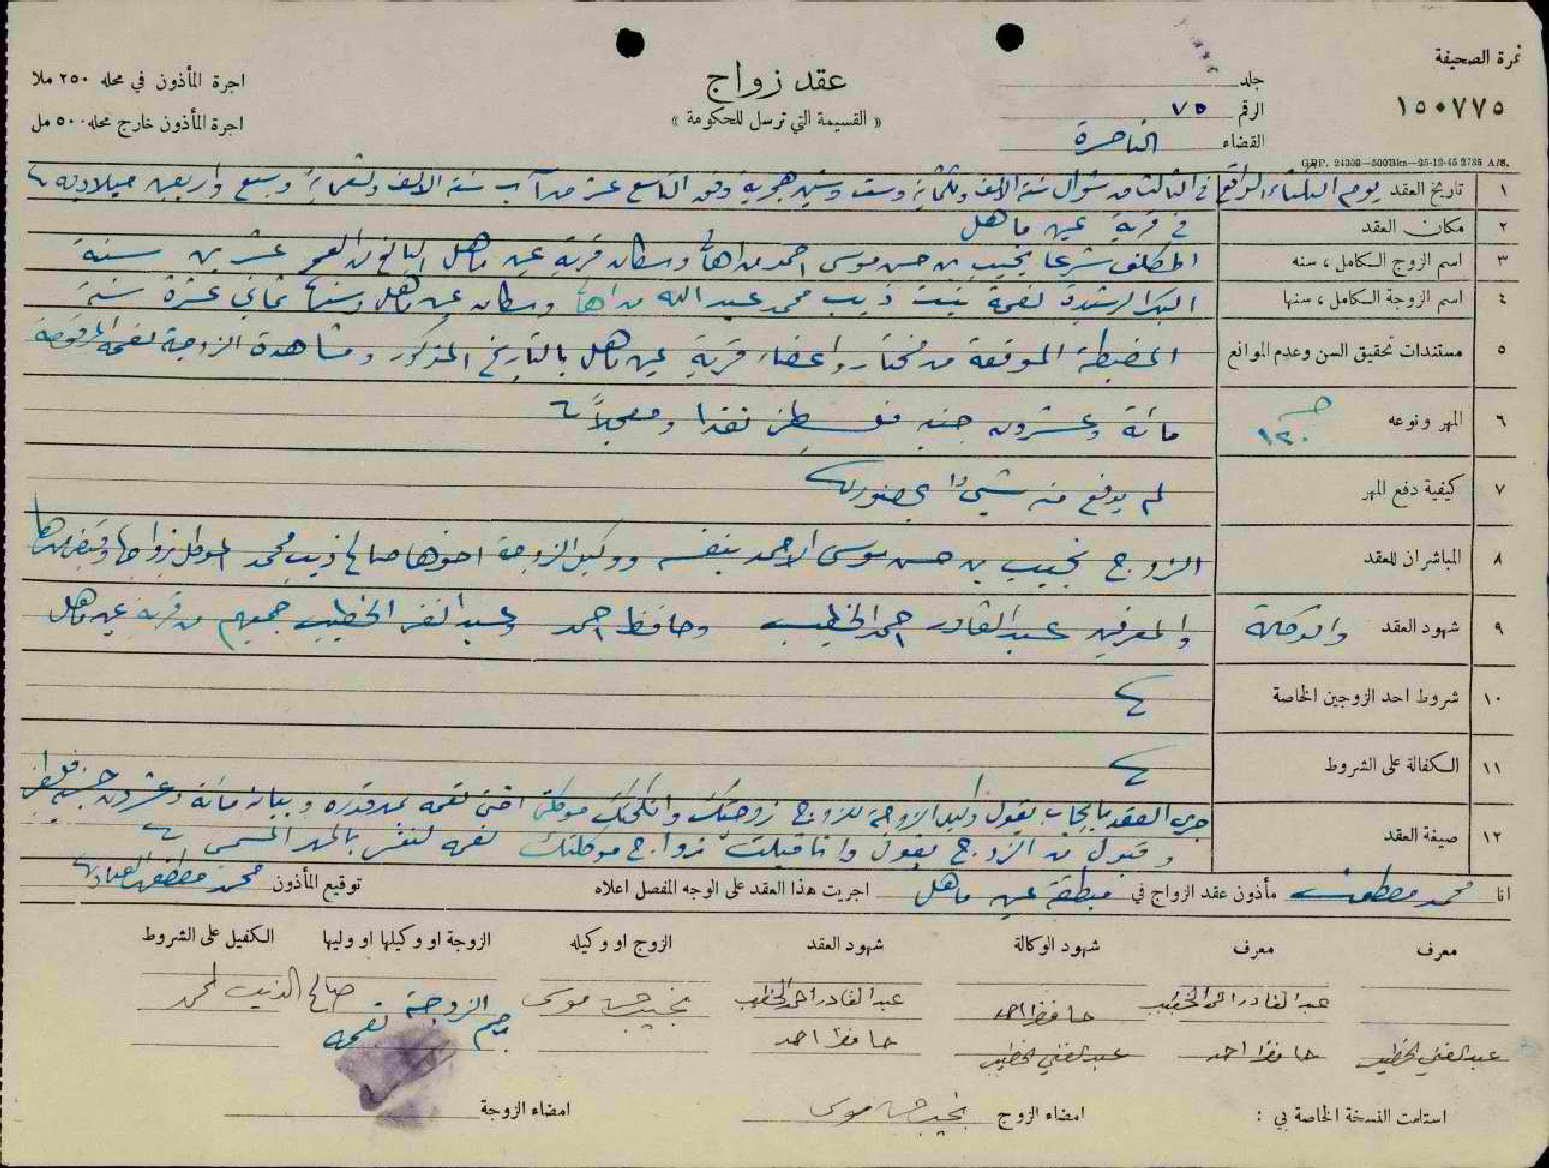 نمرة الصحيفة
١٥٠٧٧٥
جلد
الرقم ٧٥
القضاء الناصرة
عقد زواج
« القسيمة التي ترسل للحكومة »
اجرة المأذون في محله ٢٥٠ ملا
اجرة المأذون خارج محله ٥٠٠ مل
G.P.P. 21300—500 Bks—25-12-45 2735 A/S.
١ تاريخ العقد يوم الثلثاء الواقع في الثالث من شوال سنة الالف وثلثماية وست وستين هجرية وفق التاسع عشر من آب سنة الالف وتسعماية وسبع واربعين ميلاديه
٢ مكان العقد في قرية عين ماهل
٣ اسم الزوج الكامل ، سنه المكلف شرعا نجيب بن حسن موسى احمد من اهالي وسكان قرية عين ماهل البالغ من العمر عشرين سنة
٤ اسم الزوجة الكامل ، سنها البكر الرشيدة نعمة بنت ذيب محمد عبد الله من اهالي وسكان عين ماهل وسنها ثماني عشرة سنة
٥ مستندات تحقيق السن وعدم الموانع المضبطة الموقعة من مختار واعضاء قرية عين ماهل بالتاريخ المذكور ومشاهدة الزوجة نعمه
٦ المهر ونوعه ١٢٠ مائة وعشرون جنيه فلسطيني نقدا ومعجلاً
٧ كيفية دفع المهر لم يدفع منه شيئا بحضوري
٨ المباشران للعقد الزوج نجيب بن حسن موسى الاحمد بنفسه ووكيل الزوجة اخوها صالح ذيب محمد الموكل بزواجها وقبض مهرها
٩ شهود العقد والوكالة والمعرفين عبد القادر احمد الخطيب وحافظ احمد وعبد الغني الخطيب جميعهم من قرية عين ماهل
١٠ شروط احد الزوجين الخاصة
١١ الكفالة على الشروط
١٢ صيغة العقد جرى العقد بايجاب بقول وكيل الزوجة للزوج زوجتك وانكحتك موكلتي اختي نعمه بمهر قدره وبيانه مائة وعشرون جنيه فلسطيني
وقبول من الزوج بقول وانا قبلت زواج موكلتك نعمه لنفسي بالمهر المسمى
انا محمد مصطفى مأذون عقد الزواج في منطقة عين ماهل اجريت هذا العقد على الوجه المفصل اعلاه توقيع المأذون محمد مصطفى
معرف معرف شهود الوكالة شهود العقد الزوج او وكيله الزوجة او وكيلها او وليها الكفيل على الشروط
عبد القادر احمد الخطيب حافظ احمد عبد القادر احمد الخطيب نجيب حسن موسى صالح الذيب المحمد
عبد الغني الخطيب حافظ احمد عبد الغني الخطيب حافظ احمد بصم الزوجة نعمه
استلمت النسخة الخاصة بي : امضاء الزوج نجيب حسن موسى امضاء الزوجة